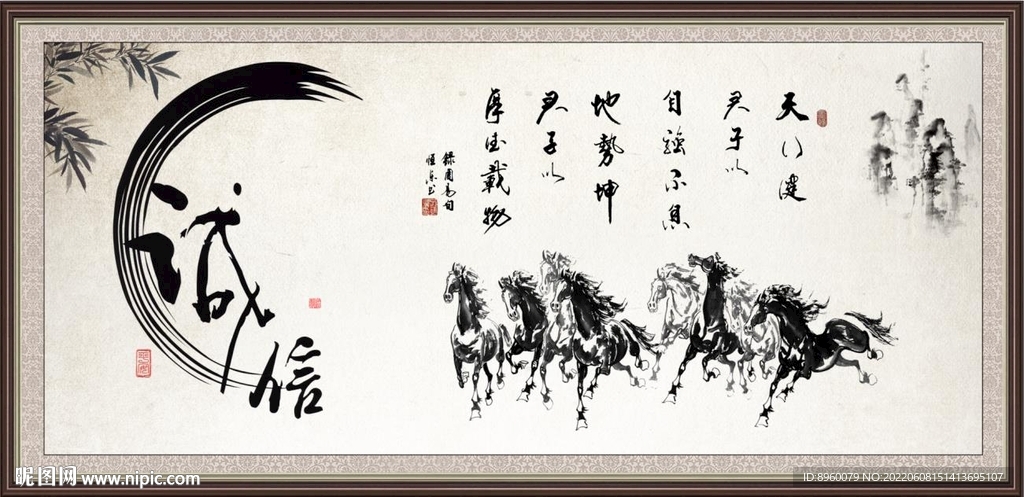 天行健
君子以
自強不息
地勢坤
君子以
厚德載物
錄周易句
诚信
昵图网 www.nipic.com
ID:8960079 NO:20220608151413695107